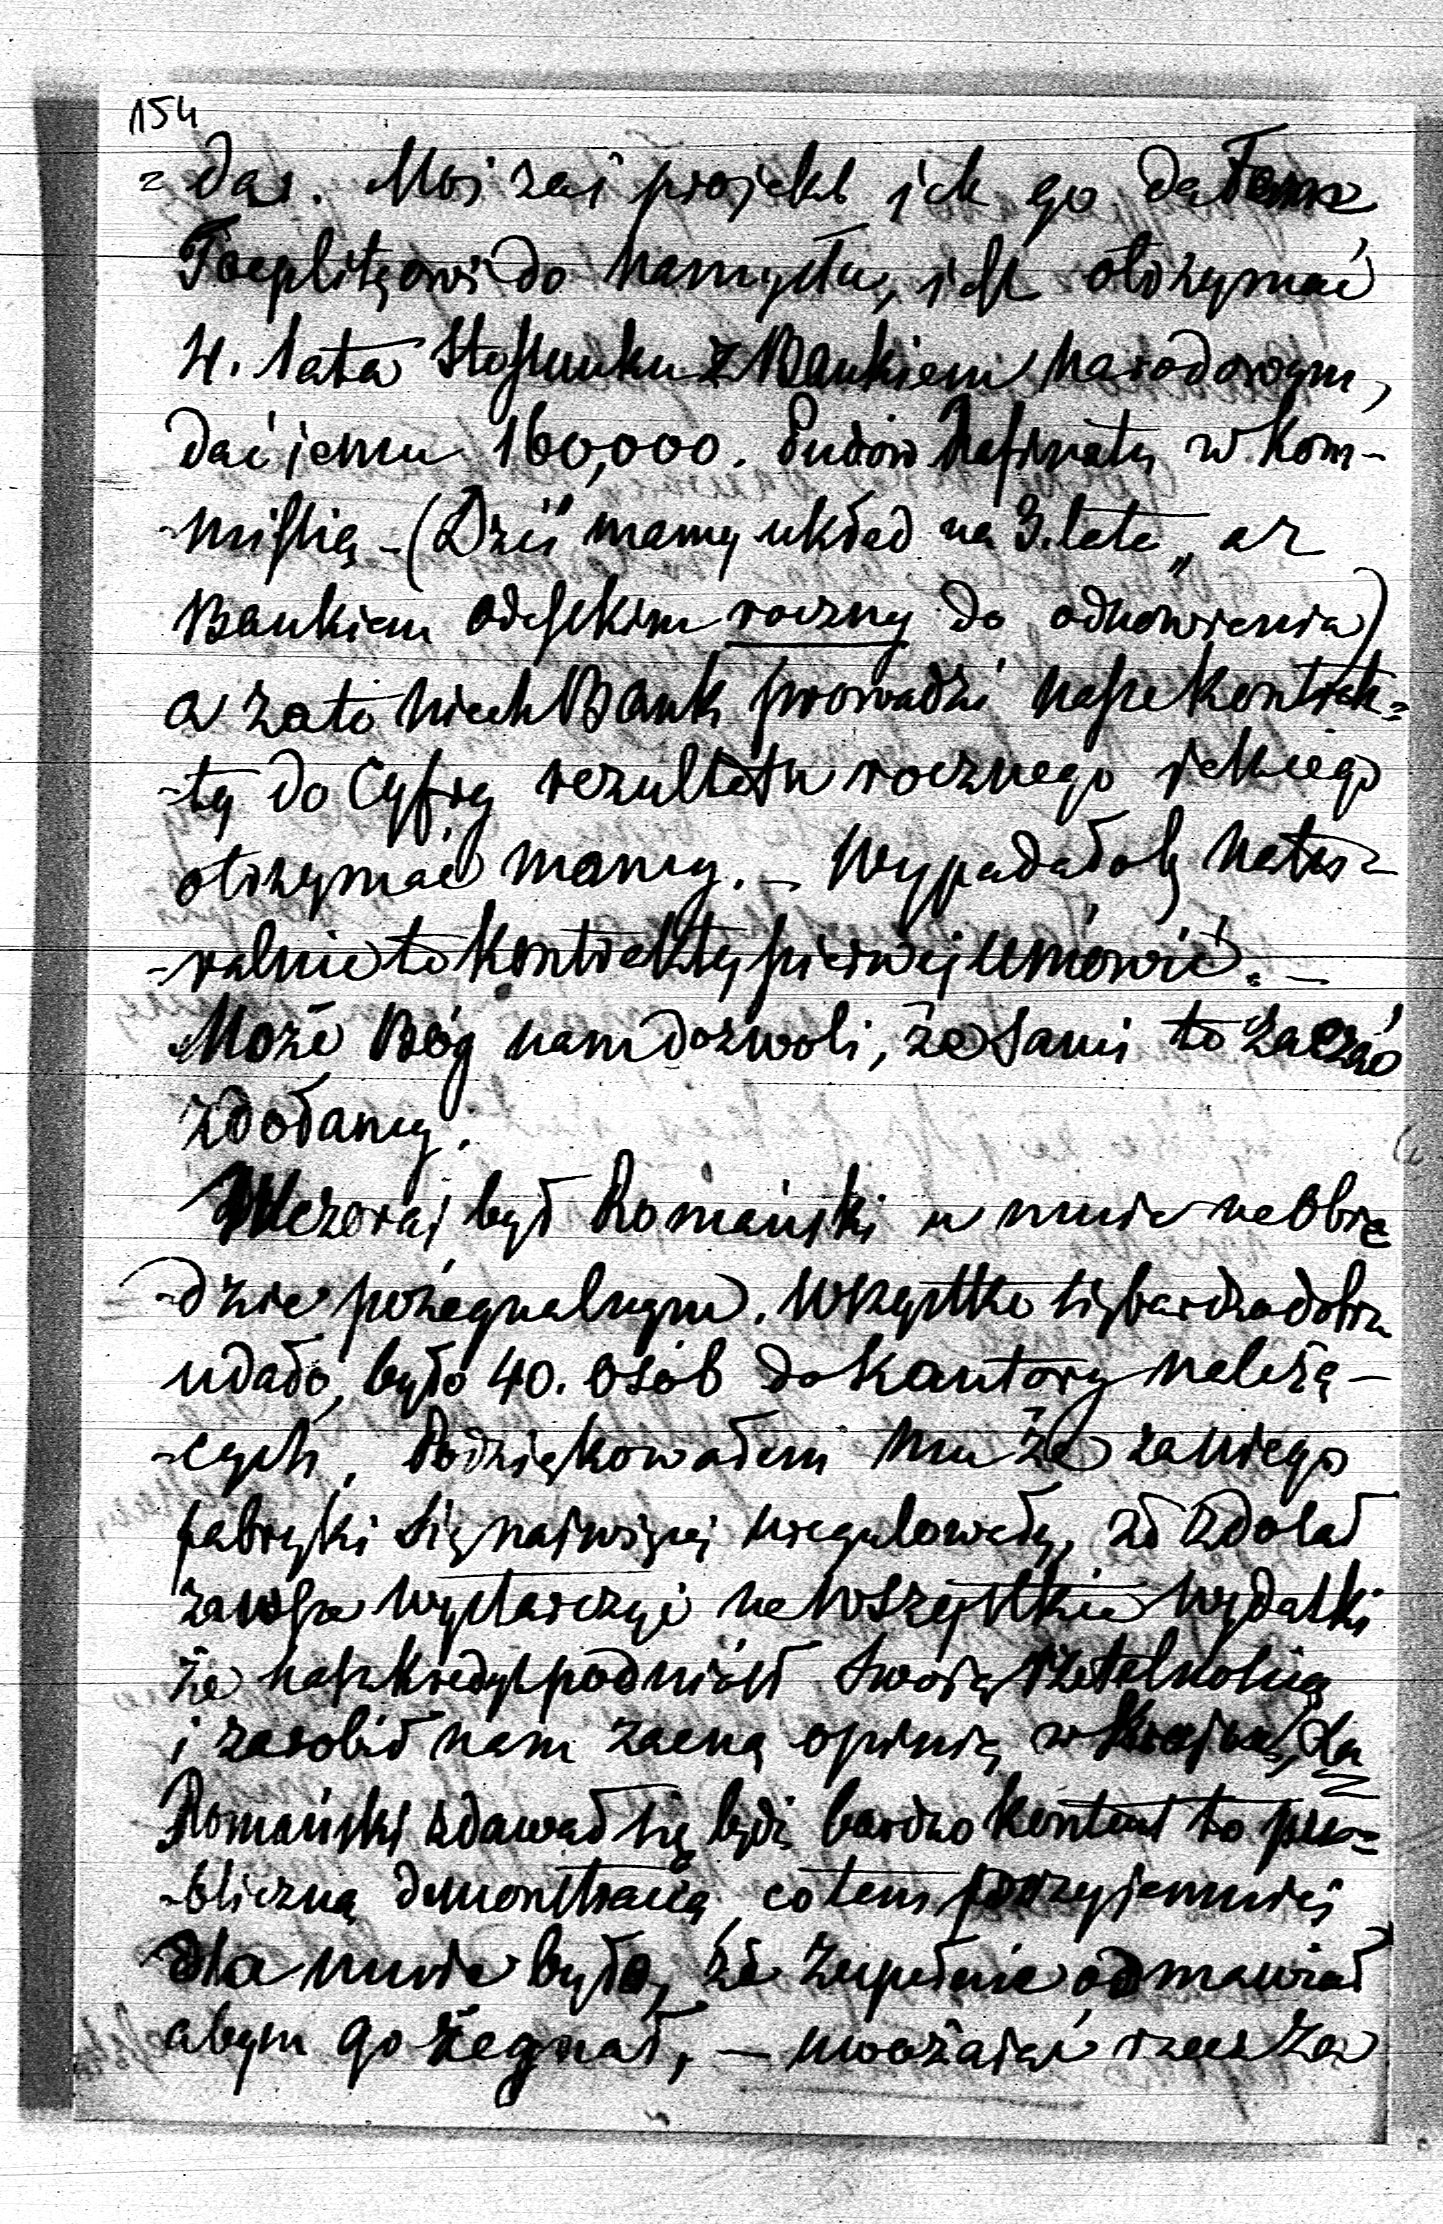 154
= dar. Moj zaś projekt jak go dałem
Toeplitzowi do namysłu, jest otrzymać
4. lata stosunku z Bankiem Narodowym,
dać jemu 160,000. pudów Rafinaty w kom-
-missią - (Dziś mamy układ na 3. lata, a z
Bankiem odesskim roczny do odnowienia)
a zato niech Bank prowadzi nasze kontrak=
-ty do Cyfry rezultatu rocznego jakiego
otrzymać mamy. - Wypadałoby natu-
-ralnie te kontrakty pierwej umówić. -
Może Bóg nam dozwoli, że sami to zacząć
zdołamy.
Wczoraj był Romański u mnie na obie
-dzie pożegnalnym. Wszystko się bardzo dobrze
udało, było 40. osób do kantory należą-
-cych. Podziękowałem mu że za niego
fabryki się najwięcej uregulowały, że zdołał
zawsze wystarczyć na wszystkie wydatki
że nasz kredyt podniósł swoją rzetelnością
i zarobił nam zacną opinią w kraju,
Romański zdawał się być bardzo kontent tą pu=
-bliczną demonstracią, co tem przyjemniej
dla mnie było, że zupełnie odmawiał
abym go żegnał, - uważając rzecz za